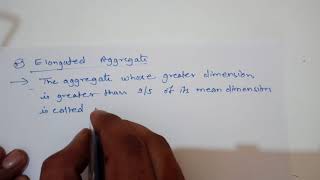 Elongated Aggregate
→ The aggregate whose greater dimension
is greater than 9/5 of its mean dimension
is called